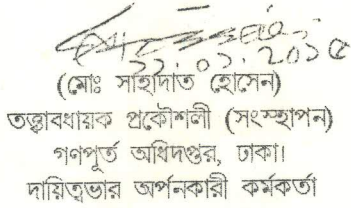 ২২.০২.২০১৫
(মোঃ সাহাদাত হোসেন)
তত্ত্বাবধায়ক প্রকৌশলী (সংস্থাপন)
গণপূর্ত অধিদপ্তর, ঢাকা।
দায়িত্বভার অর্পনকারী কর্মকর্তা